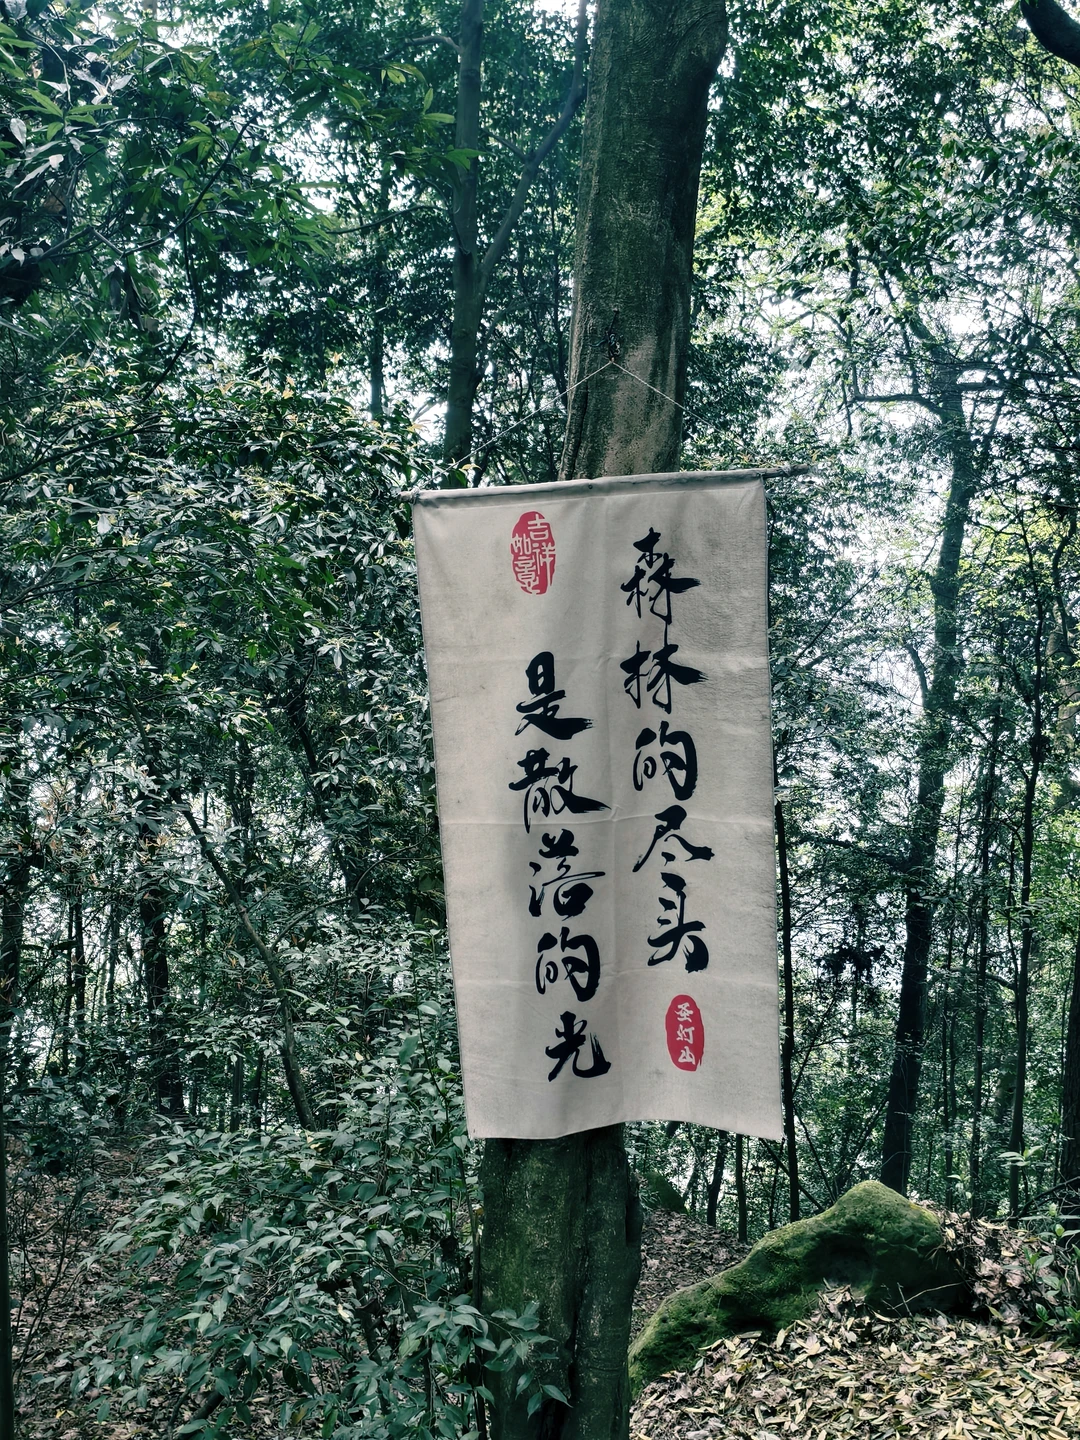 森林的尽头
圣灯山
吉祥如意
是散落的光